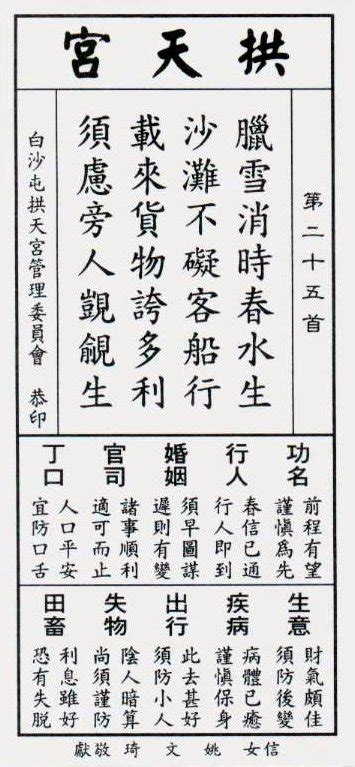 拱天宮
第二十五首
臘雪消時春水生
沙灘不礙客船行
載來貨物誇多利
須慮旁人覬覦生
白沙屯拱天宮管理委員會 恭印
功名
前程有望
謹慎為先
行人
春信已通
行人即到
婚姻
須早圖謀
遲則有變
官司
諸事順利
適可而止
丁口
人口平安
宜防口舌
生意
財氣頗佳
須防後變
疾病
病體已癒
謹慎保身
出行
此去甚好
須防小人
失物
陰人暗算
尚須謹防
田畜
利息雖好
恐有失脫
信女 姚文琦 敬獻